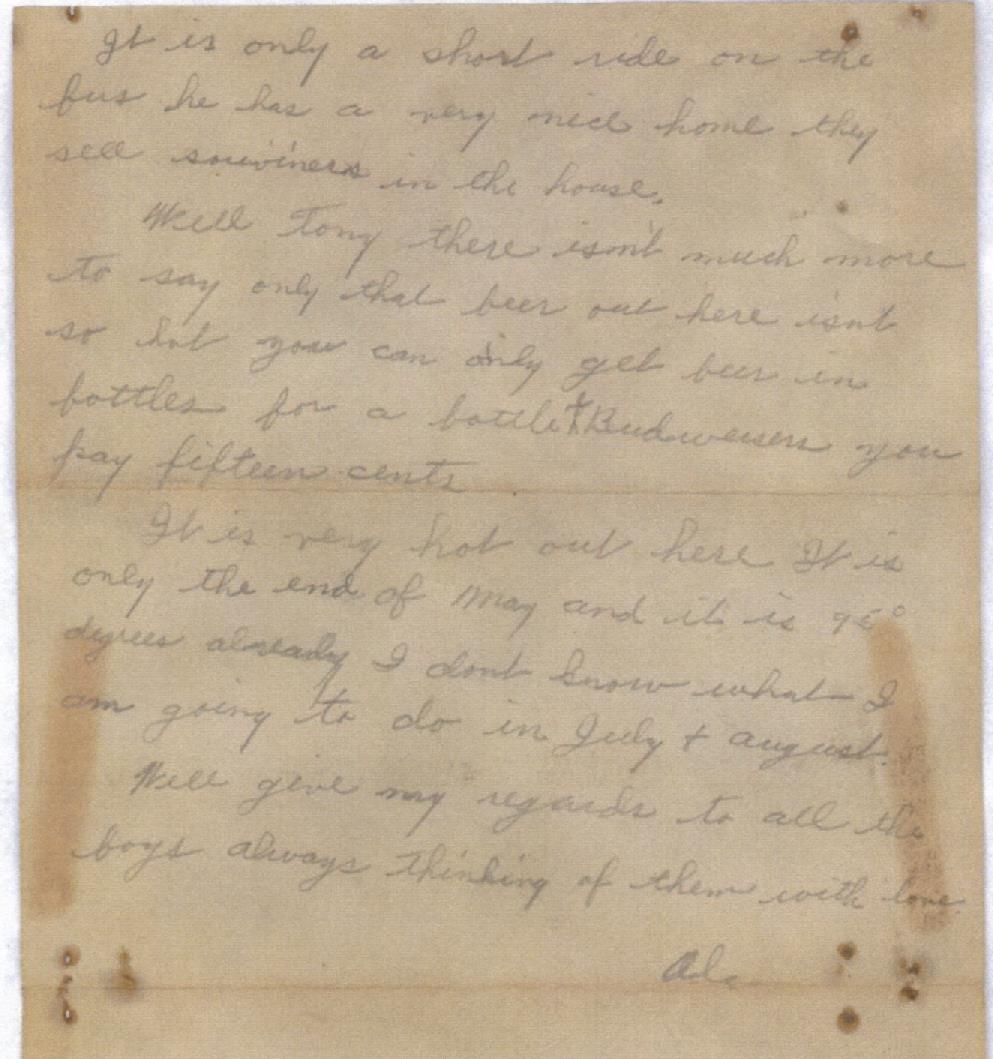 It is only a short ride on the
bus he has a very nice home they
sell souviners in the house.
Well Tony there isn't much more
to say only that beer out here isn't
so hot you can only get beer in
bottles for a bottle Budweisers you
pay fifteen cents
It is very hot out here It is
only the end of May and it is
degrees already I dont know what I
am going to do in July + august.
Well give my regards to all the
boys always thinking of them with love